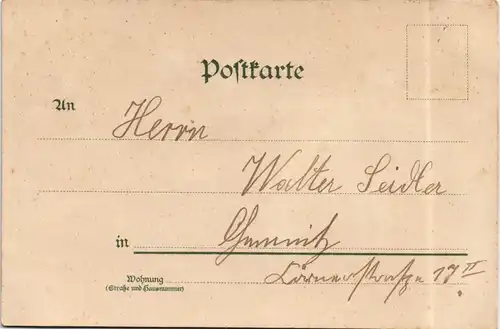 Postkarte
An Herrn
Walter Seidler
in Chemnitz
Wohnung Körnerstraße 17 II
(Straße und Hausnummer)